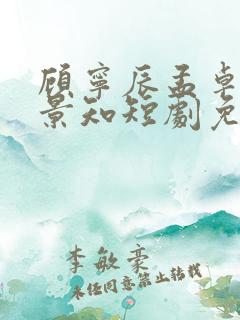 顧寧辰孟卓
景知短劇免
李敏豪
未经同意禁止转载